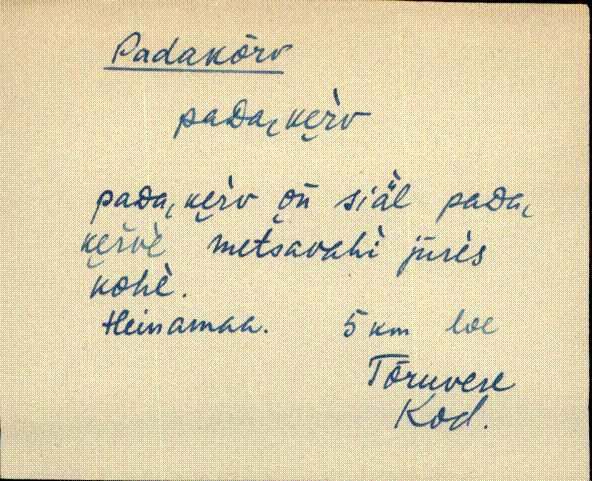 Padakõrv
paDa,ke̮r̀v
paDa,ke̮r̀v o̮n̄ siä̀l paDa,
ke̮r̀vè metsavahì jūrès
kohè.
Heinamaa. 5 km loe
Tõruvere
Kod.